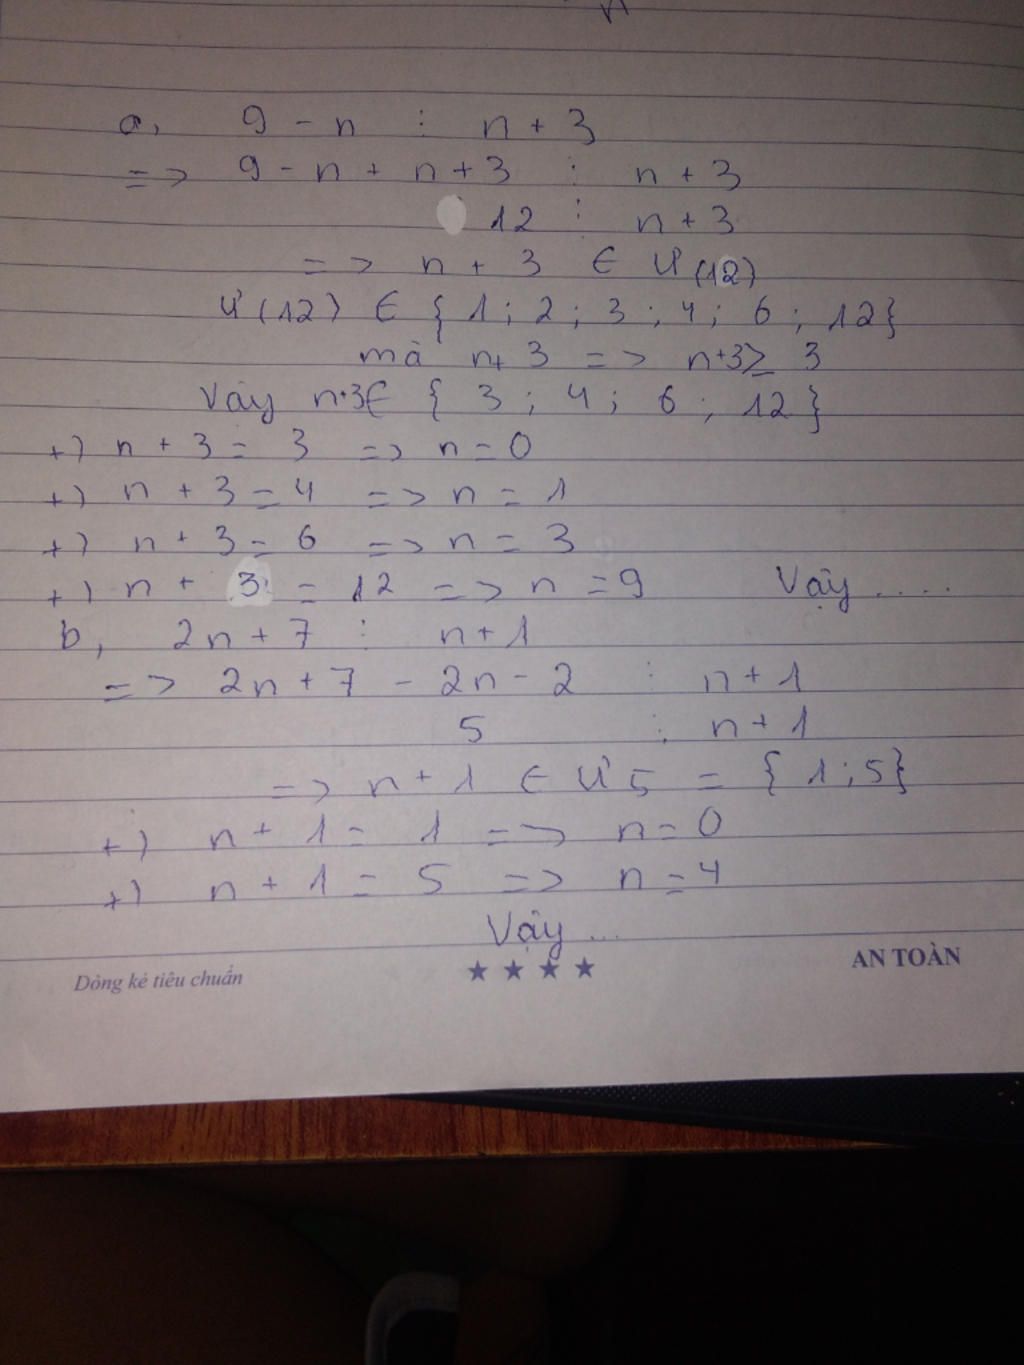 a, 9 - n ⋮ n + 3
=> 9 - n + n + 3 ⋮ n + 3
12 ⋮ n + 3
=> n + 3 ∈ Ư(12)
Ư(12) ∈ { 1 ; 2 ; 3 ; 4 ; 6 ; 12}
mà n+ 3 => n+3 ≥ 3
Vậy n+3∈ { 3 ; 4 ; 6 ; 12 }
+) n + 3 = 3 => n = 0
+) n + 3 = 4 => n = 1
+) n + 3 = 6 => n = 3
+) n + 3 = 12 => n = 9 Vậy ....
b, 2n + 7 ⋮ n+1
=> 2n + 7 - 2n - 2 ⋮ n + 1
5 ⋮ n + 1
=> n + 1 ∈ Ư5 = { 1 ; 5}
+) n + 1 = 1 => n = 0
+) n + 1 = 5 => n = 4
Vậy ...
Dòng kẻ tiêu chuẩn ★ ★ ★ ★ AN TOÀN